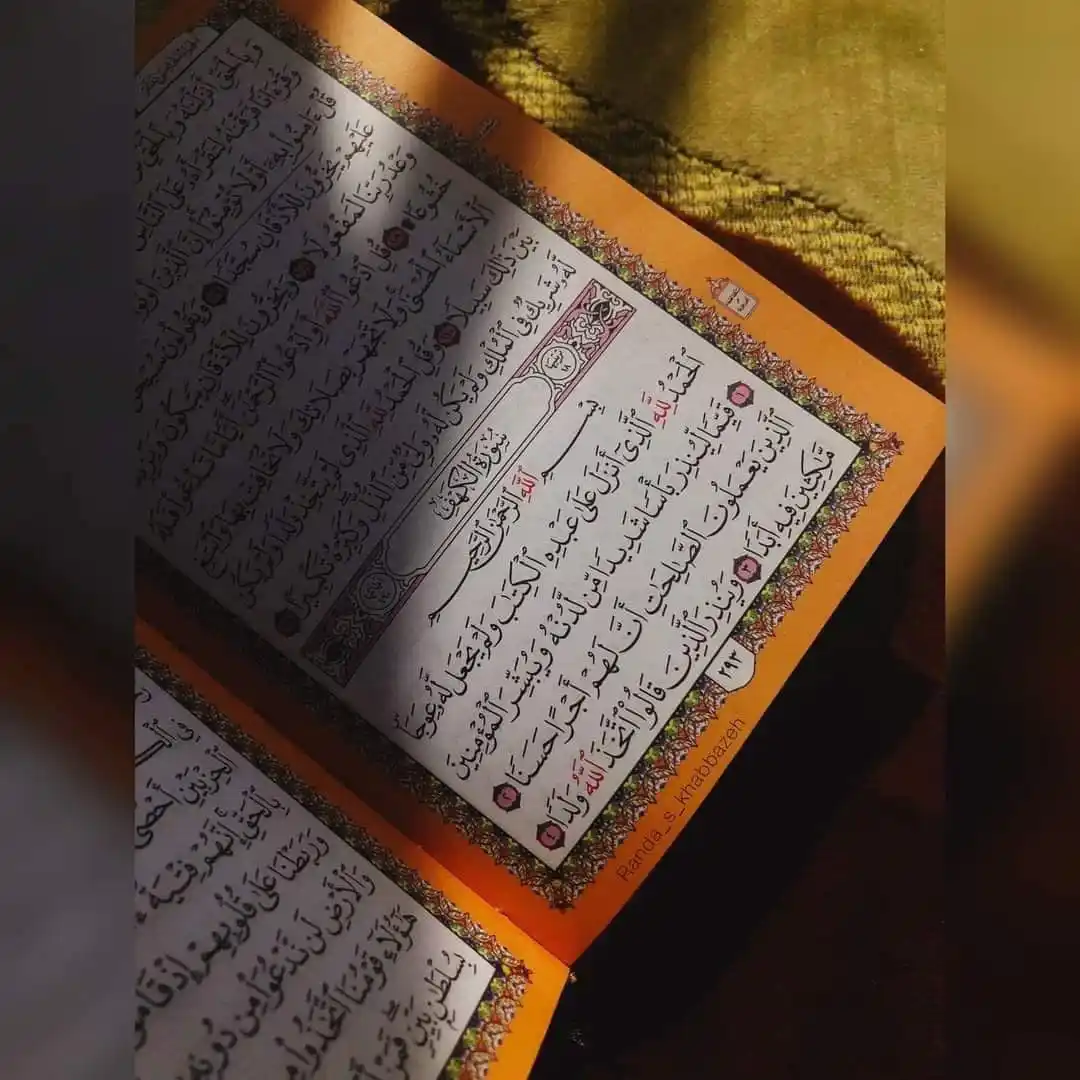 وَبِٱلْحَقِّ أَنزَلْنَٰهُ وَبِٱلْحَقِّ
وَقُرْءَانًا فَرَقْنَٰهُ لِتَقْرَأَهُۥ عَلَى ٱلنَّاسِ
قُلْ ءَامِنُوا۟ بِهِۦٓ أَوْ لَا تُؤْمِنُوٓا۟ إِنَّ ٱلَّذِينَ
عَلَيْهِمْ يَخِرُّونَ لِلْأَذْقَانِ سُجَّدًا ١٠٧ وَيَقُولُونَ
وَعْدُ رَبِّنَا لَمَفْعُولًا ١٠٨ وَيَخِرُّونَ لِلْأَذْقَانِ يَبْكُونَ
خُشُوعًا ١٠٩ قُلِ ٱدْعُوا۟ ٱللَّهَ أَوِ ٱدْعُوا۟ ٱلرَّحْمَٰنَ أَيًّا مَّا تَدْعُوا۟ فَلَهُ
ٱلْأَسْمَآءُ ٱلْحُسْنَىٰ وَلَا تَجْهَرْ بِصَلَاتِكَ وَلَا تُخَافِتْ بِهَا وَٱبْتَغِ
بَيْنَ ذَٰلِكَ سَبِيلًا ١١٠ وَقُلِ ٱلْحَمْدُ لِلَّهِ ٱلَّذِى لَمْ يَتَّخِذْ وَلَدًا وَلَمْ يَكُن
لَّهُۥ شَرِيكٌ فِى ٱلْمُلْكِ وَلَمْ يَكُن لَّهُۥ وَلِىٌّ مِّنَ ٱلذُّلِّ وَكَبِّرْهُ تَكْبِيرًۢا ١١١
سُورَةُ ٱلْكَهْفِ
بِسْمِ ٱللَّهِ ٱلرَّحْمَٰنِ ٱلرَّحِيمِ
ٱلْحَمْدُ لِلَّهِ ٱلَّذِىٓ أَنزَلَ عَلَىٰ عَبْدِهِ ٱلْكِتَٰبَ وَلَمْ يَجْعَل لَّهُۥ عِوَجَا
١ قَيِّمًا لِّيُنذِرَ بَأْسًا شَدِيدًا مِّن لَّدُنْهُ وَيُبَشِّرَ ٱلْمُؤْمِنِينَ
ٱلَّذِينَ يَعْمَلُونَ ٱلصَّٰلِحَٰتِ أَنَّ لَهُمْ أَجْرًا حَسَنًا ٢
مَّٰكِثِينَ فِيهِ أَبَدًا ٣ وَيُنذِرَ ٱلَّذِينَ قَالُوا۟ ٱتَّخَذَ ٱللَّهُ وَلَدًا ٤
٢٩٣
Randa_s_khabbazeh
أَحْصَىٰ
بِٱلْحَقِّ إِنَّهُمْ فِتْيَةٌ
وَرَبَطْنَا عَلَىٰ قُلُوبِهِمْ إِذْ قَامُوا۟
وَٱلْأَرْضِ لَن نَّدْعُوَا۟ مِن دُونِهِۦٓ
هَٰٓؤُلَآءِ قَوْمُنَا ٱتَّخَذُوا۟
بِسُلْطَٰنٍۭ بَيِّنٍ فَمَنْ